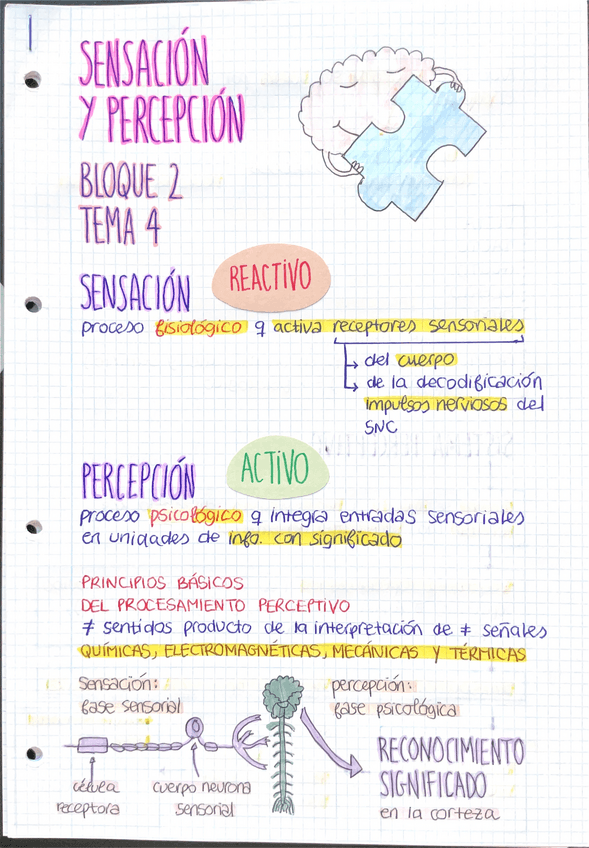 SENSACIÓN
Y PERCEPCIÓN
BLOQUE 2
TEMA 4
SENSACIÓN REACTIVO
proceso fisiológico q activa receptores sensoriales
del cuerpo
de la decodificación
impulsos nerviosos del
SNC
PERCEPCIÓN ACTIVO
proceso psicológico q integra entradas sensoriales
en unidades de info. con significado
PRINCIPIOS BÁSICOS
DEL PROCESAMIENTO PERCEPTIVO
≠ sentidos producto de la interpretación de ≠ señales
QUÍMICAS, ELECTROMAGNÉTICAS, MECÁNICAS Y TÉRMICAS
sensación:
fase sensorial
percepción:
fase psicológica
célula
receptora
cuerpo neurona
sensorial
RECONOCIMIENTO
SIGNIFICADO
en la corteza